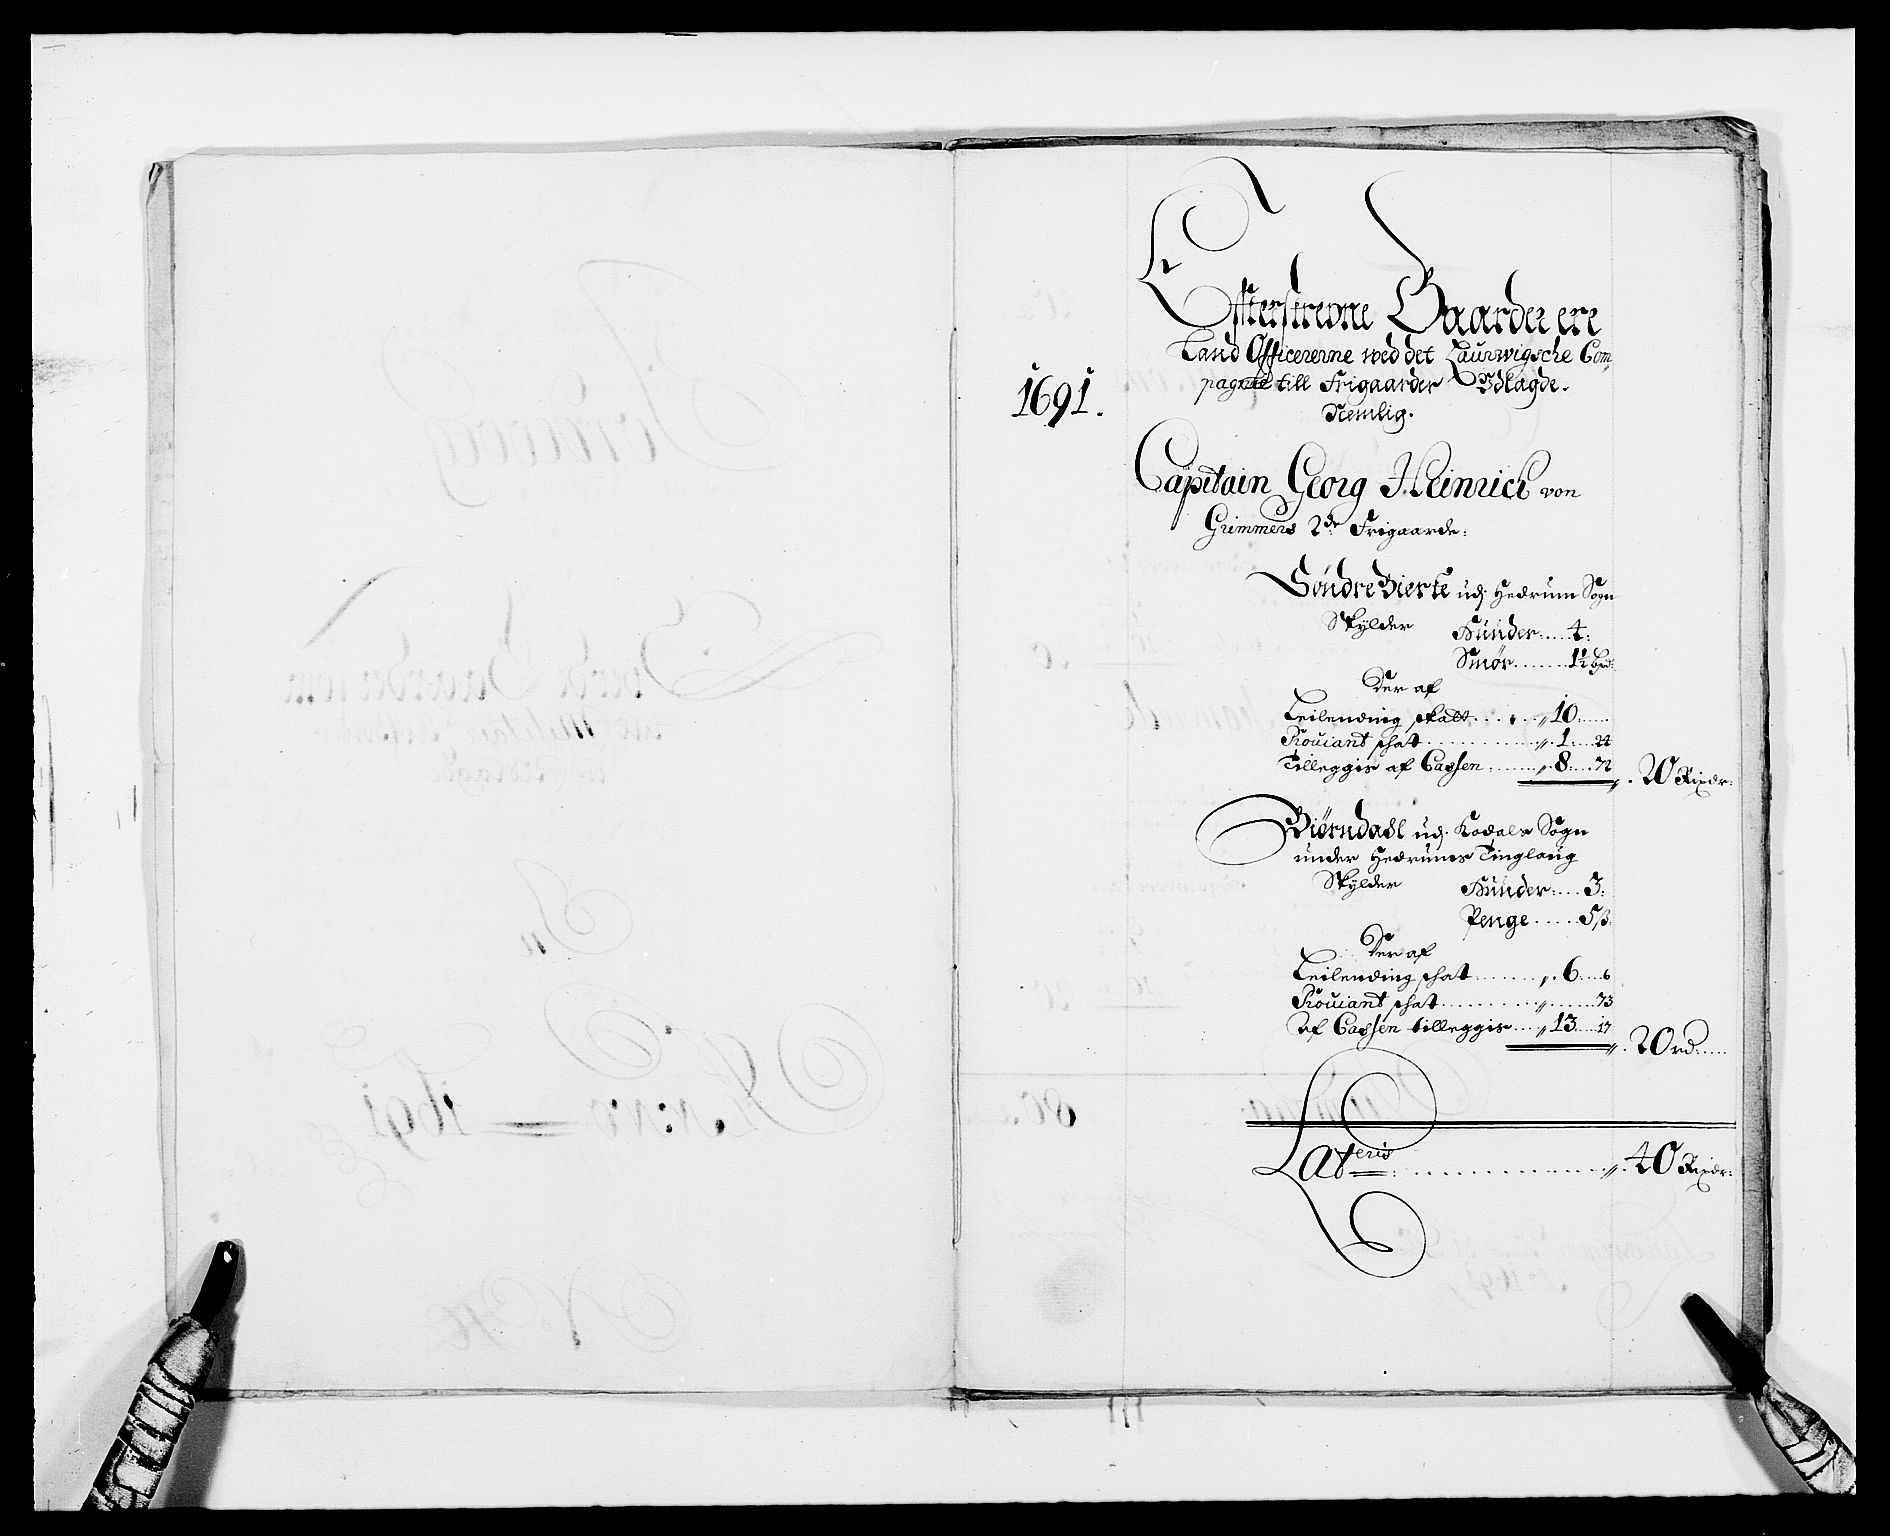 Efterskrevne Gaarder ere
Land Officererne wed det Laurwigsche Com-
pagnie till Frigaarder Udlagde.
1691.
Nemlig.
Capitain Georg Heinrich von
Grimmers 2de Frigaarde:
Söndre Bierke udj Hedrum Sogn
Skylder Huuder: .... 4:
Smør ....... 1½ bpd:
Der af
Leilending skatt .... „ 10: ....
Prouiant skat .......... „ 1: ... 24
Tilleggis af Cassen: ..... „ 8: ... 72
„. 20 Rixdr:
Biørndahl udj Kodals Sogn
under Hedrums Tinglaug
Skylder Huuder: .... 3:
Penge ..... 5 ß:
Der af
Leilending skat ...... „. 6 ... 6
Prouiant skat ......... „ ...... 73
Af Cassen tilleggis .... „ 13 ... 17
„. 20 rd: ....
Lateris ............ „. 40 Rixdr: